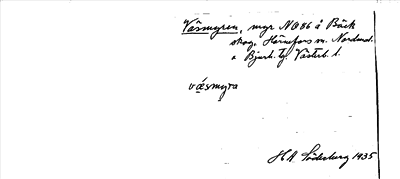 Väsmyren, myr NO86 å Bäck
skog, Hörnefors m. Nordmal.
o Bjurh. tg. Västerb. l.
væsmyra
H A Söderberg 1935